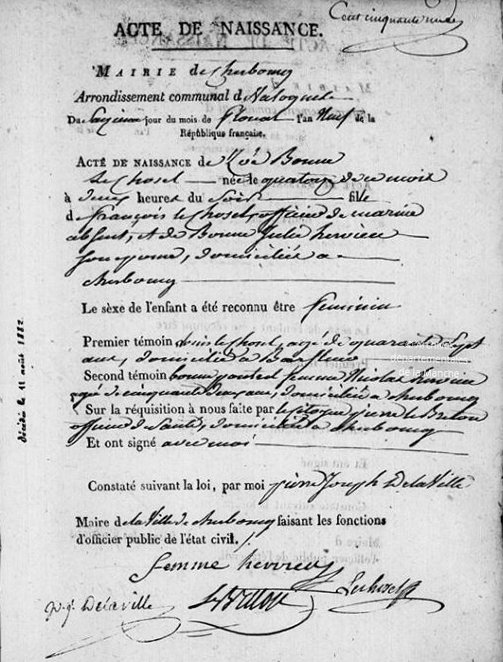 ACTE DE NAISSANCE.
MAIRIE de Cherbourg
Arrondissement communal d
Du jour du mois de floreal l'an Neuf de la
République française.
ACTE DE NAISSANCE de Bonne
Le Chosel née le quatorze de ce mois
à deux heures du Soir fille
de françois le Chosel, officier de marine
absent, et de Bonne Julie hervieu
Son epouse, domiciliés a
cherbourg
Le sèxe de l'enfant a été reconnu être feminin
Premier témoin le Chosel, agé de quarante Sept
ans, domicilié a Barfleur
Second témoin bonne femme Nicolas hervieu
agé de cinquante ans, domiciliée a cherbourg
Sur la réquisition à nous faite par le Citoyen pierre le Breton
officier de Santé, domicilié a cherbourg
Et ont signé avec moi
Constaté suivant la loi, par moi pierre Joseph Delaville
Maire de la Ville de cherbourg faisant les fonctions
d'officier public de l'état civil.
femme hervieu
p. j. Delaville
LeBreton
Lechosel
décédée le 11 août 1882
départementales
de la Manche